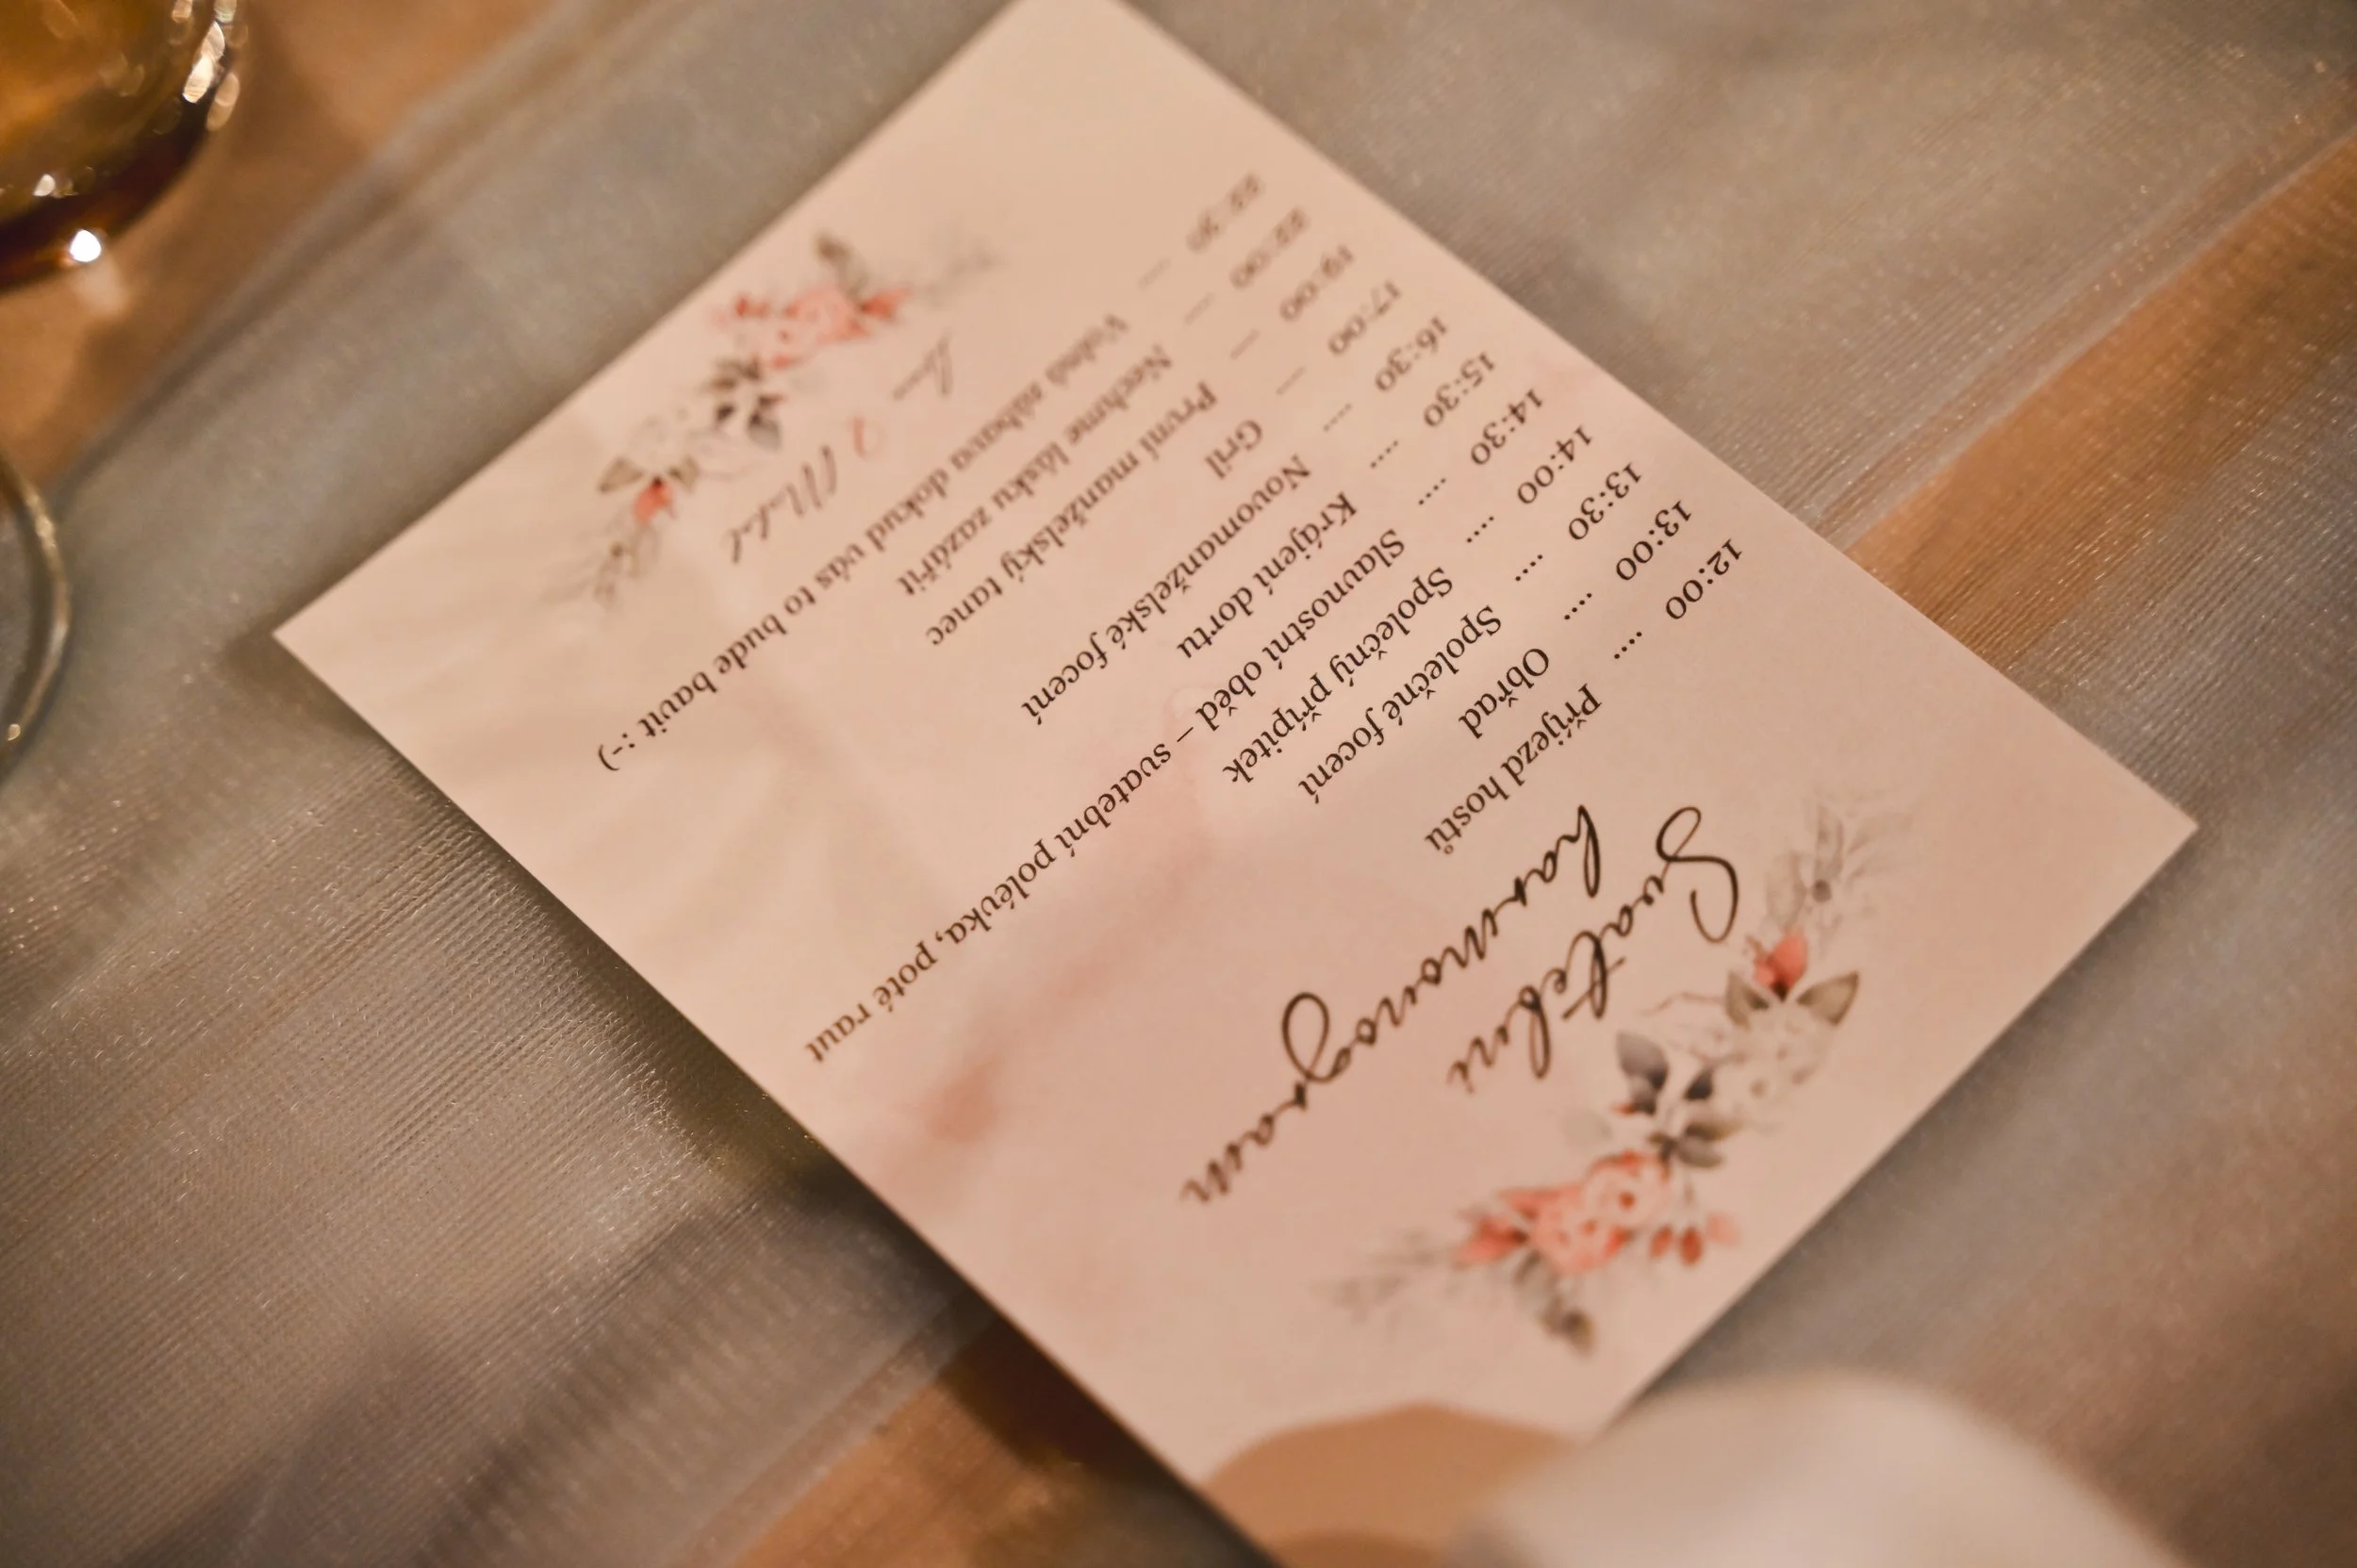 Svatební
harmonogram
12:00 .... Příjezd hostů
13:00 .... Obřad
13:30 .... Společné focení
14:00 .... Společný přípitek
14:30 .... Slavnostní oběd – svatební polévka, poté raut
15:30 .... Krájení dortu
16:30 .... Novomanželské focení
17:00 .... Gril
19:00 .... První manželský tanec
22:00 .... Nechme lásku zazářit
22:30 .... Volná zábava dokud vás to bude bavit :-)